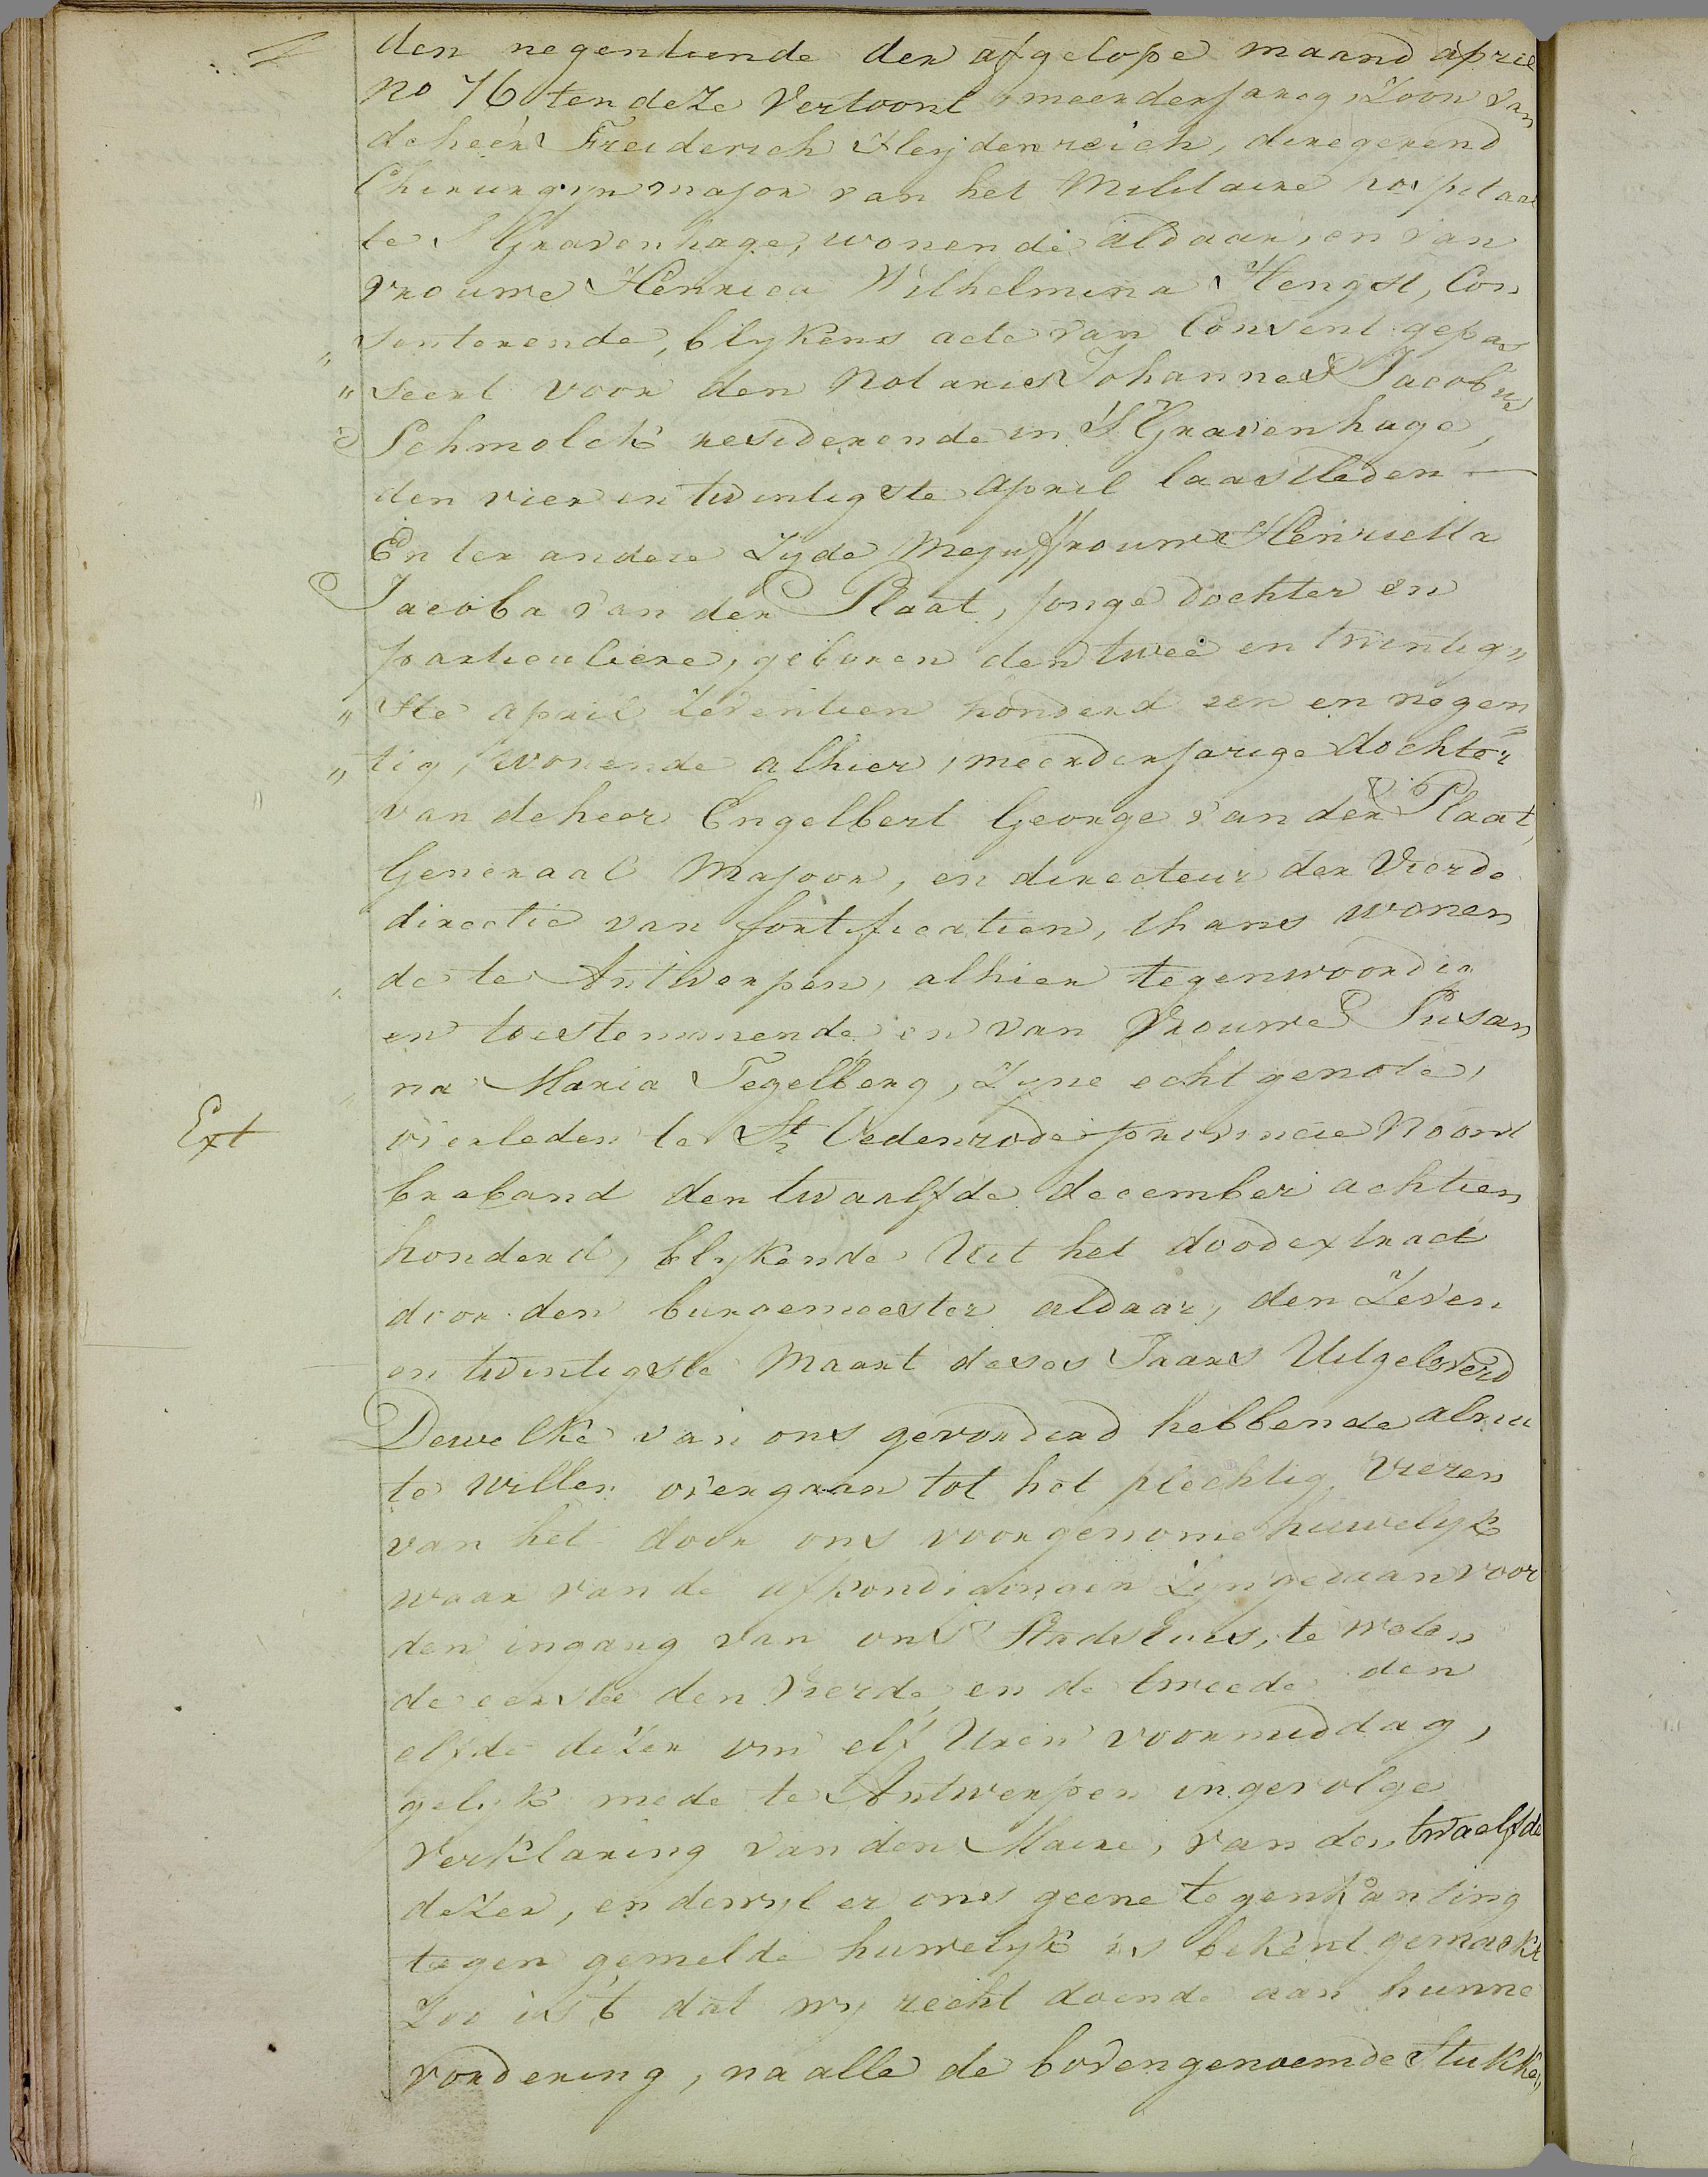 den negentiende der afgelope maand april
no 76 ten deze Vertoont, meerderjareg, Zoon van
de heer Freiderich Heydenreich, deregerend
Chirurgyn major van het Militaire hospitaal
te S Gravenhage, wonende aldaar, en van
Vrouwe Henrica Wilhelmina Hengst, Con
senterende, blykens acte van Consent gepas
" seert voor den Notaries Johannes Jacobus
Schmolck residerende in S'Gravenhage,
den vier en twintigste april laastleden —
En ter andere Zyde Mejuffrouw Henrietta
Jacoba van der Plaat, jonge dochter en
particuliere, geboren den twee en twintig"
" ste april Zeventien honderd een en negen"
" tig, wonende alhier, meerderjarige dochter
van de heer Engelbert George van der Plaat,
Generaal Majoor, en directeur der Vierde
directie van fortificatien, thans wonen
de te Antwerpen, alhier tegenwoordig
en toestemmende en van Vrouwe Susan
na Maria Tegelberg, Zyne echtgenote,
Ext
overleden te St Oedenrode provincie Noord
braband den twaalfde december achtien
honderd, blykende Uit het doodextract
door den burgemeester aldaar, den Zeven
en twintigste Maart deses Jaars Uitgeleverd
Dewelke van ons gevorderd hebbende alnu
te willen overgaan tot het plechtig vieren
van het door ons voorgenome huwelyk
waar van de afkondigingen Zyn gedaan voor
den ingang van ons Stadshuis, te weten
de eerste den Vierde, en de tweede den
elfde dezer om elf Uren voormiddag,
gelyk mede te Antwerpen ingevolge
Verklaring van den Maire, van den twaelfde
dezer, en dewyl er ons geene tegenkanting
tegen gemelde huwelyk is bekent gemaakt
Zoo is't dat wy recht doende aan hunne
vordering, na alle de bovengenoemde Stukken